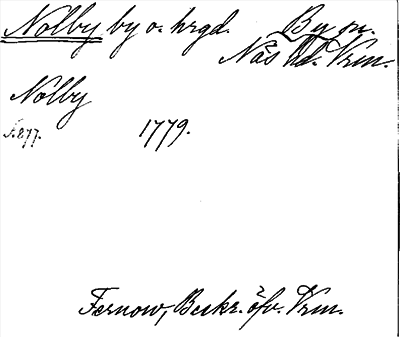 Nolby by o. hrgd. By sn.
Näs hd. Vrm.
Nålby
s. 277. 1779.
Fernow, Beskr. öfv. Vrm.